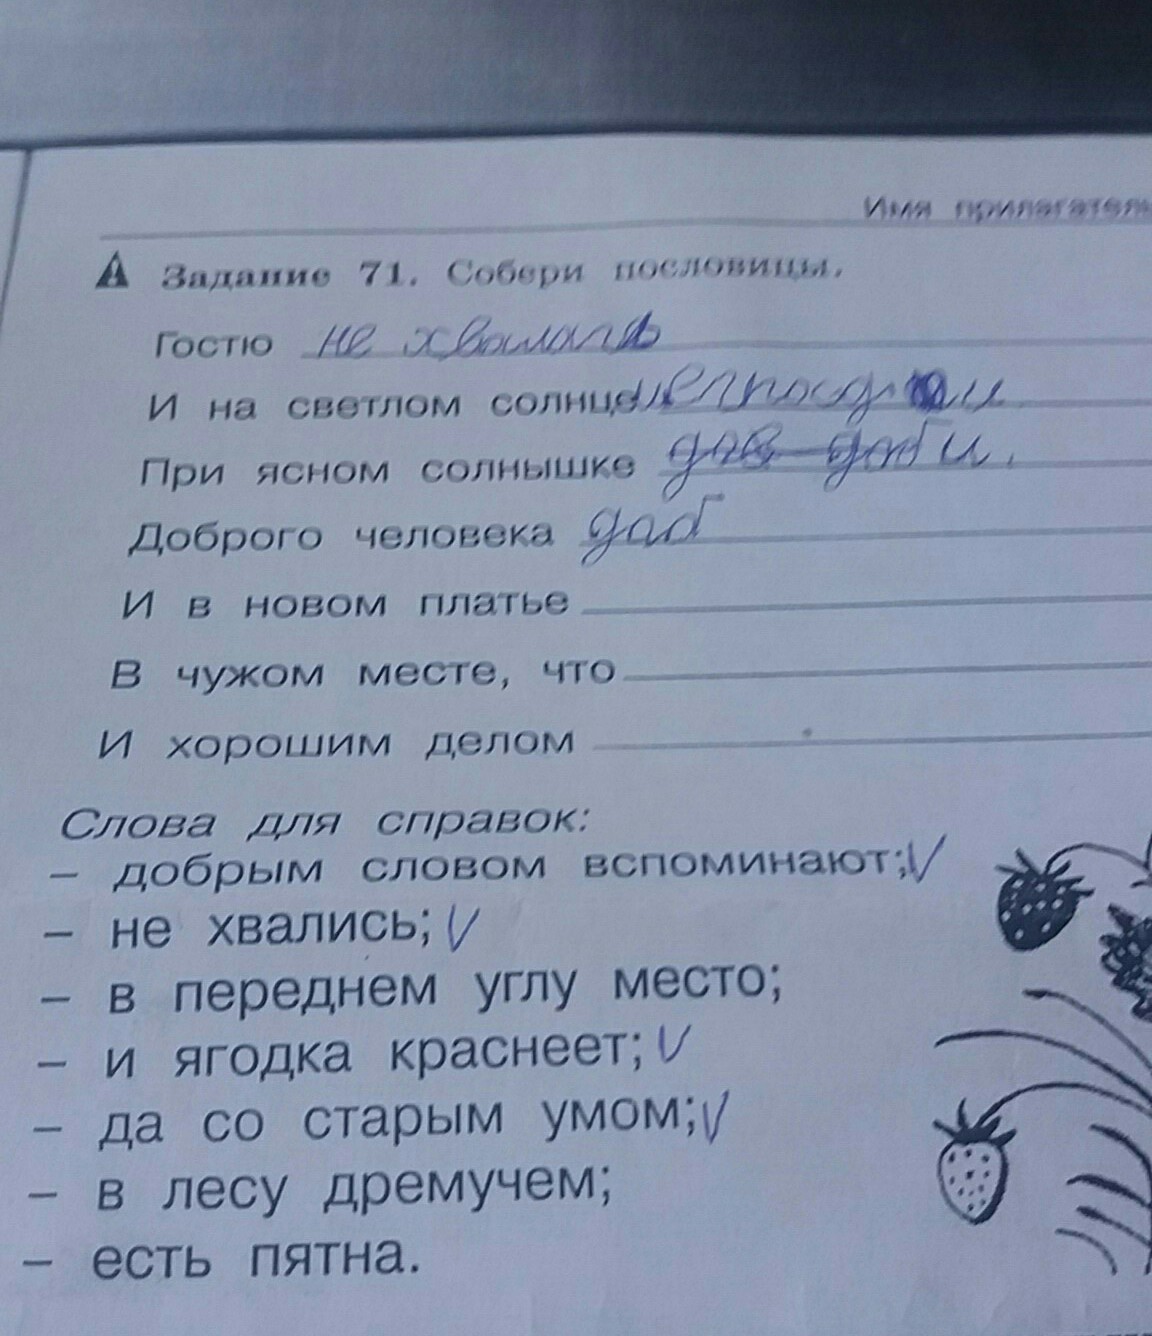 Имя прилагатель
Задание 71. Собери пословицы.
Гостю не хвались
И на светлом солнце
При ясном солнышке
Доброго человека доб
И в новом платье
В чужом месте, что
И хорошим делом
Слова для справок:
– добрым словом вспоминают; V
– не хвались; V
– в переднем углу место;
– и ягодка краснеет; V
– да со старым умом; V
– в лесу дремучем;
– есть пятна.